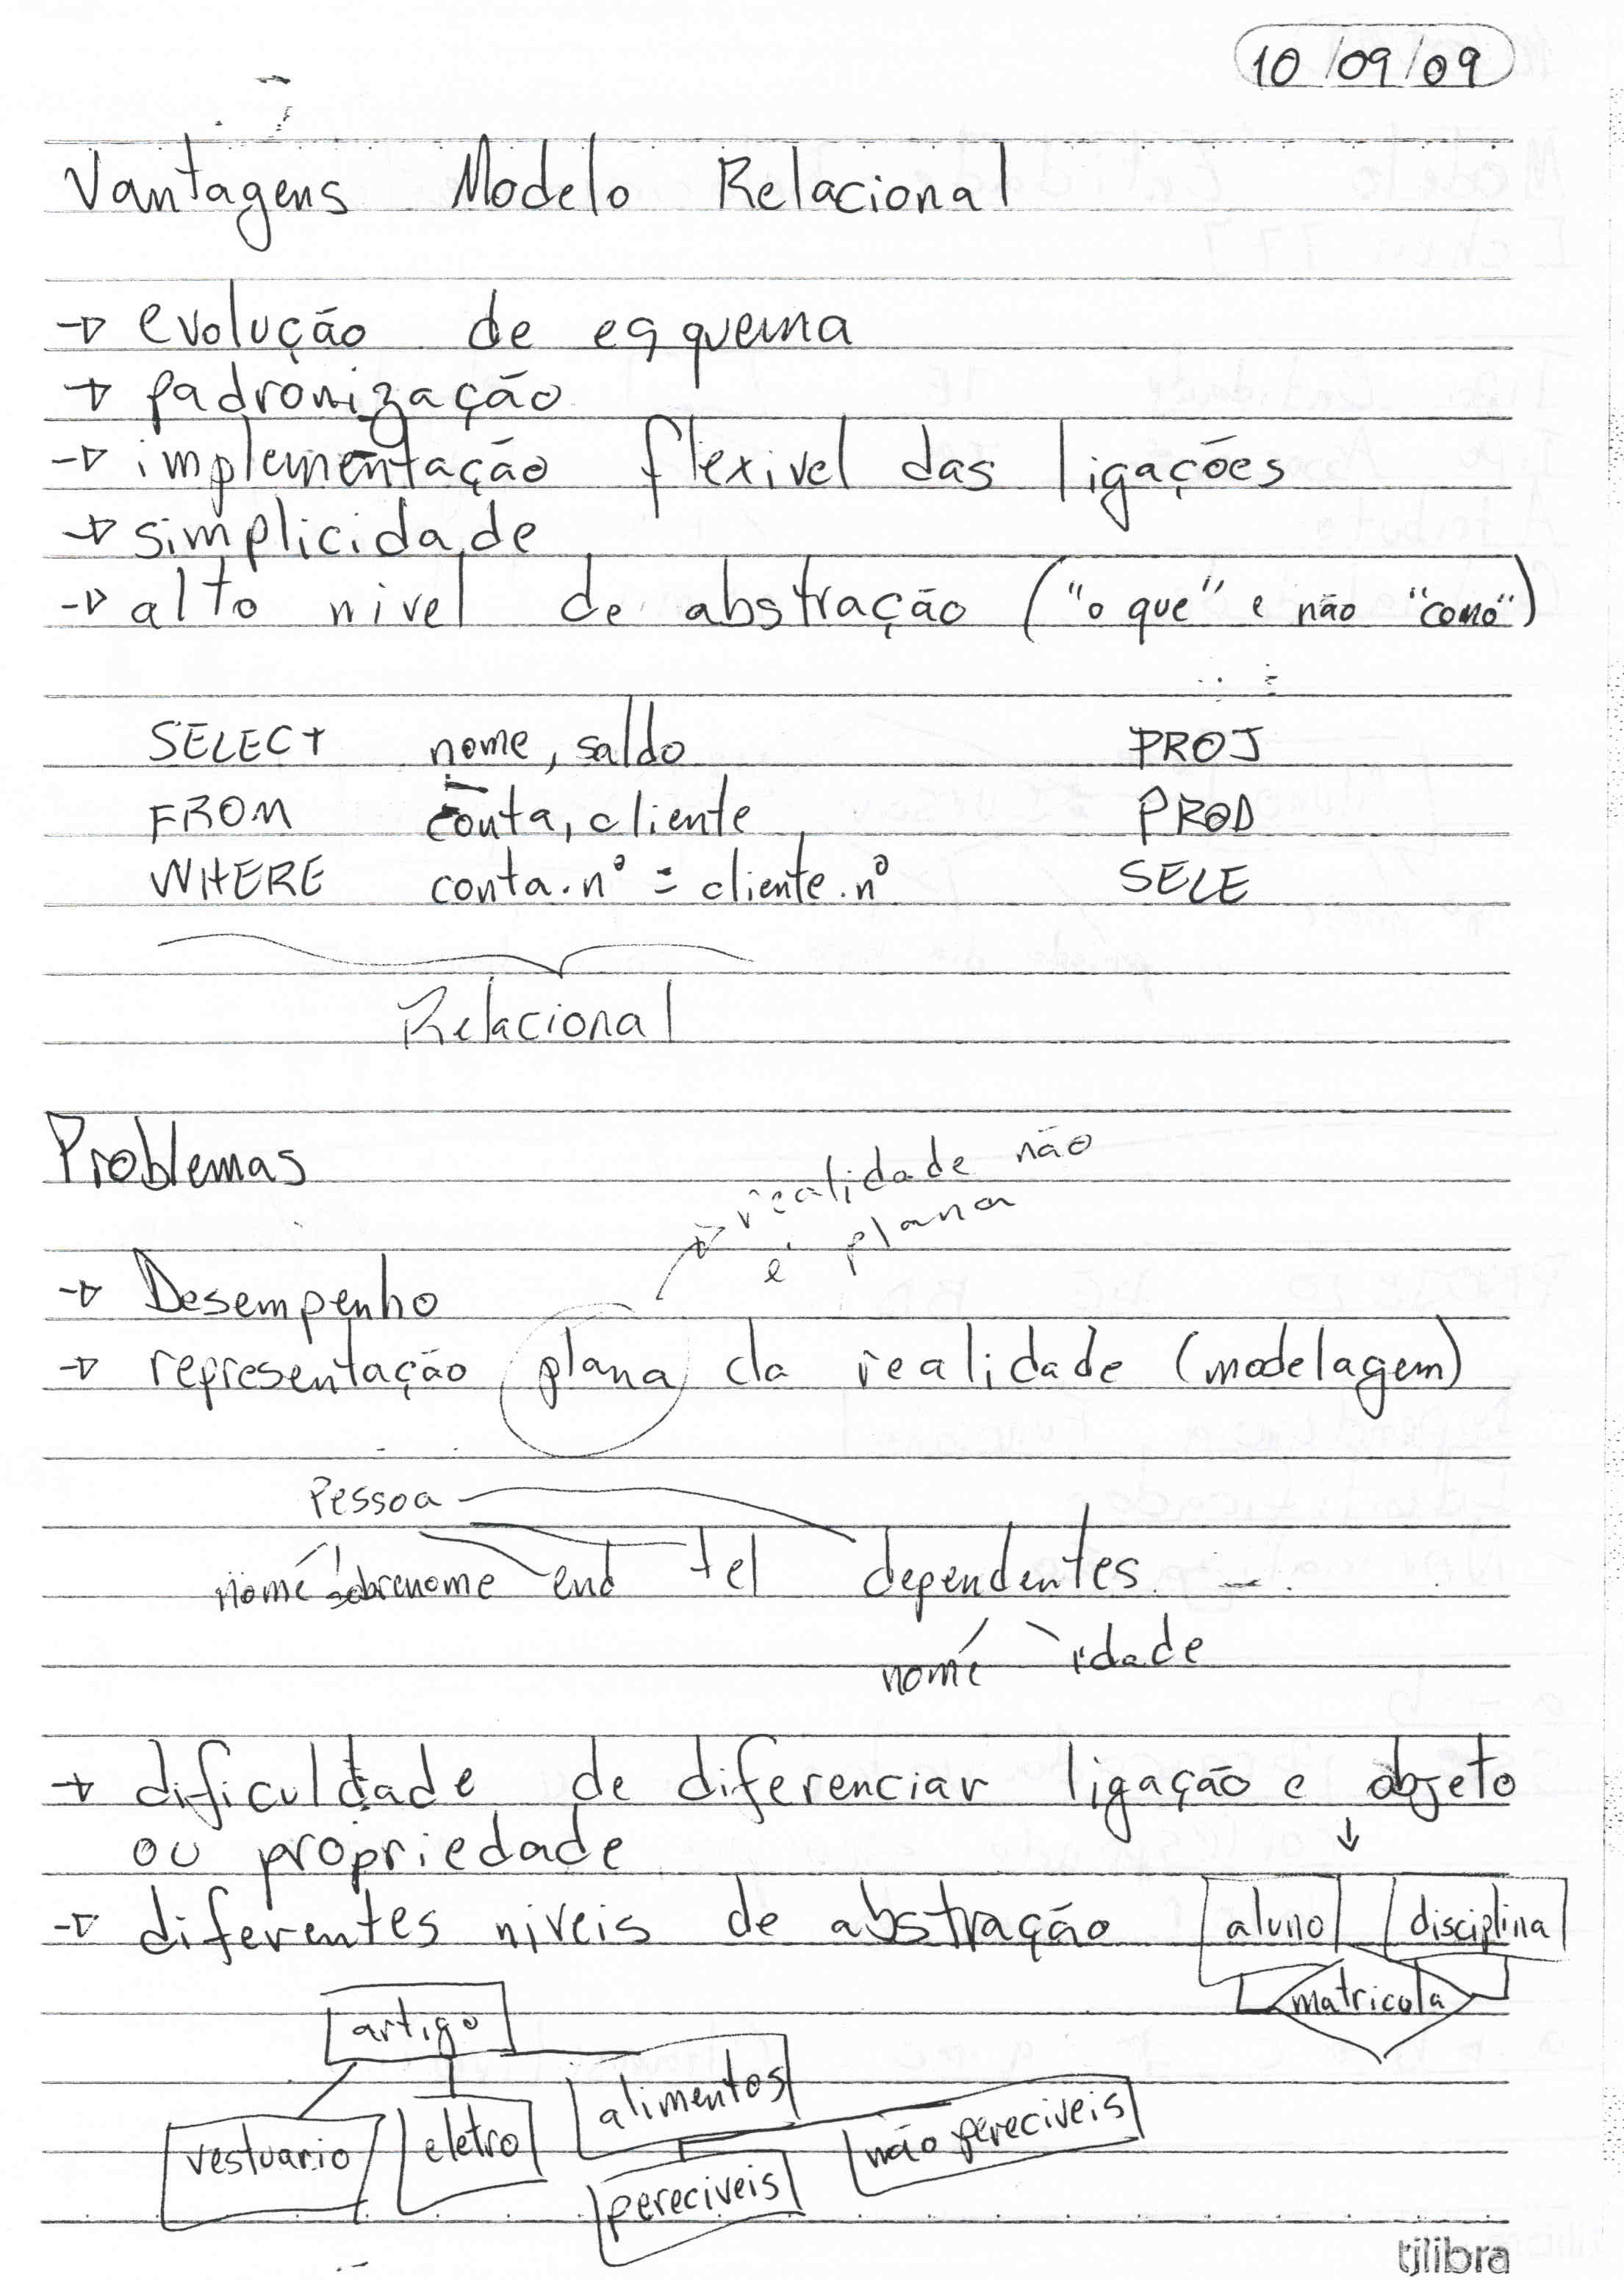 10/09/09
Vantagens Modelo Relacional
→ evolução de esquema
→ padronização
→ implementação flexivel das ligações
→ simplicidade
→ alto nivel de abstração ("o que" e não "como")
SELECT nome, saldo PROJ
FROM conta, cliente PROD
WHERE conta.nº = cliente.nº SELE
Relacional
Problemas
→ realidade não
é plana
→ Desempenho
→ representação plana da realidade (modelagem)
Pessoa
nome sobrenome end tel dependentes ...
nome idade
→ dificuldade de diferenciar ligação e objeto
ou propriedade
→ diferentes niveis de abstração aluno disciplina
matricula
artigo
vestuario eletro alimentos
pereciveis não pereciveis
tilibra